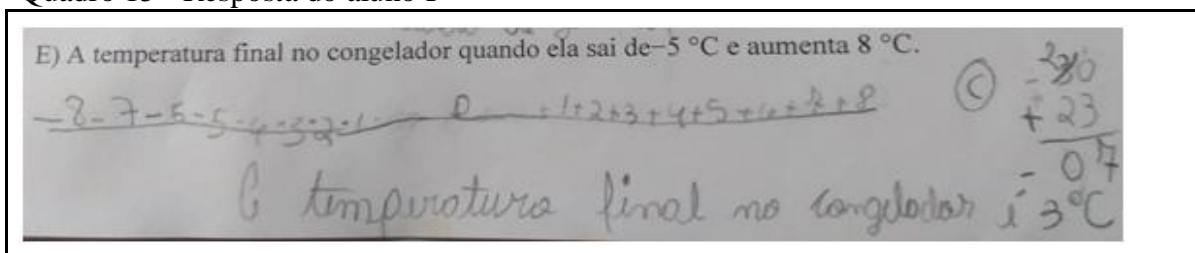 E) A temperatura final no congelador quando ela sai de−5 °C e aumenta 8 °C.
-8-7-6-5-4-3-2-1 0 +1+2+3+4+5+6+7+8
C
-30
+ 23
- 07
A temperatura final no congelador é 3°C